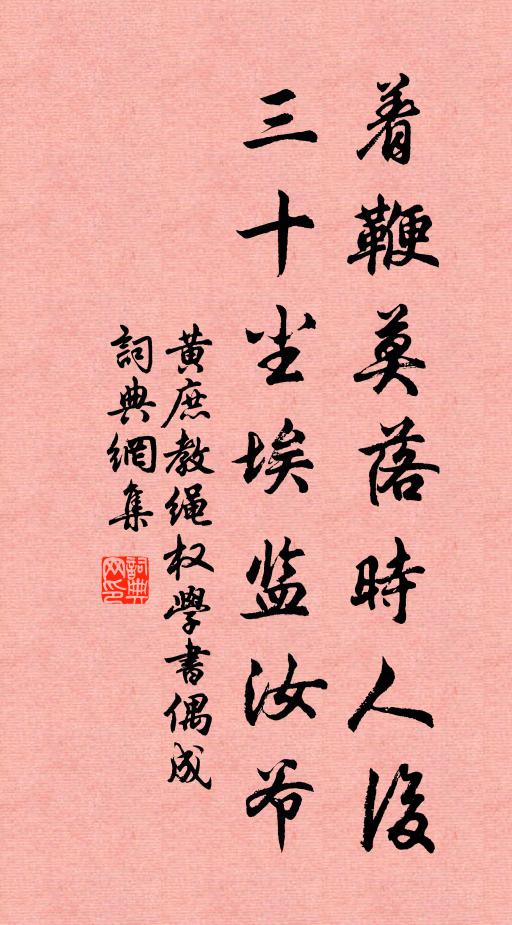 着鞭莫落時人後
三十尘埃监汝爷
黃庶教绳权學書偶成
詞典網集
詞典网印